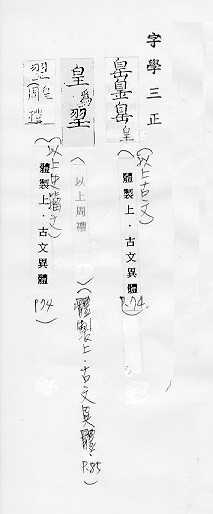 字學三正
皇(以上古文)體製上．古文異體P.74.
皇為翌(以上周禮)(體製上．古文異體P.85)
(以上史籀文)體製上．古文異體P.74